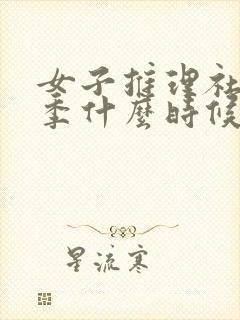 女子推理社
季什麼時候
星流寒